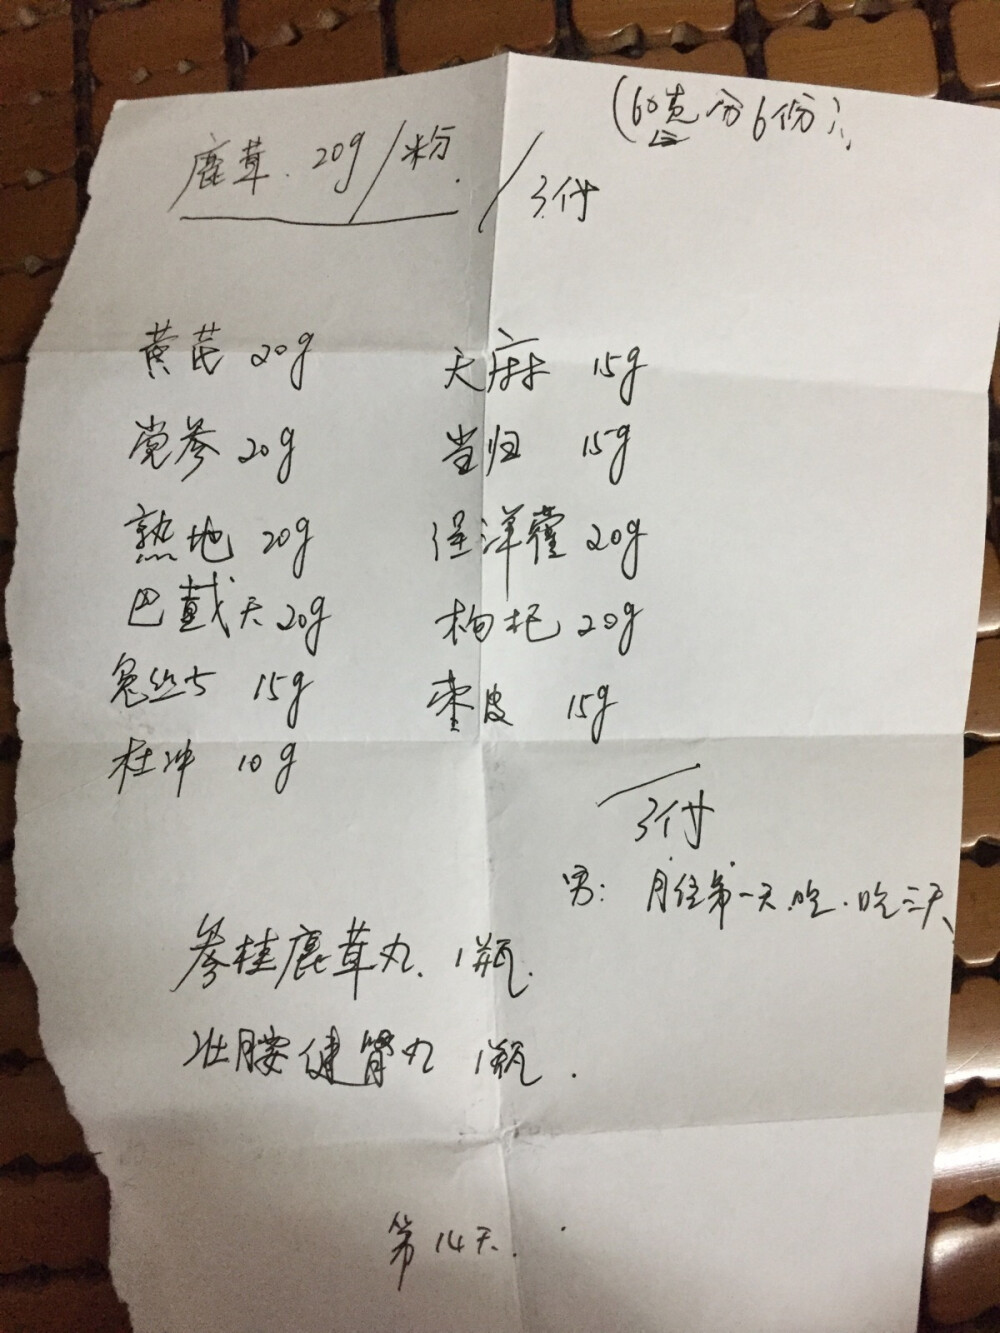 (60克分6份)
鹿茸. 20g/粉. / 3付
黄芪 20g 天麻 15g
党参 20g 当归 15g
熟地 20g 淫洋藿 20g
巴戟天 20g 枸杞 20g
兔丝子 15g 枣皮 15g
杜冲 10g
3付
男: 月经第一天吃.吃三天
参桂鹿茸丸. 1瓶.
壮腰健肾丸 1瓶.
第14天.